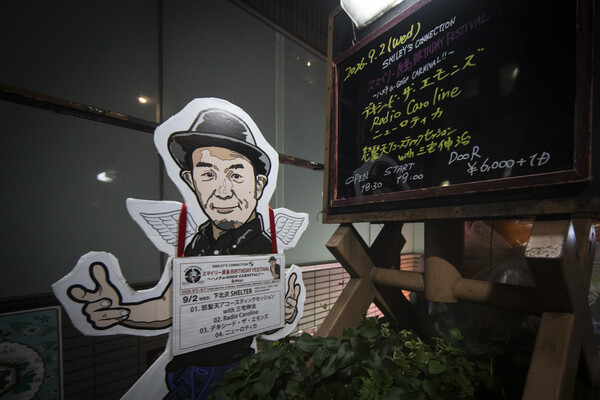 2026.9.2(wed)
SMILEY'S CONNECTION
スマイリー原島 BIRTHDAY FESTIVAL
〜ハチャ・GoGo CARNIVAL!!〜
デキシード・ザ・エモンズ
Radio Caroline
ニューロティカ
怒髪天アコースティックセッション
with 三宅伸治
OPEN START DOOR
18:30 19:00 ¥6,000+1D
SMILEY'S CONNECTION
スマイリー原島 BIRTHDAY FESTIVAL
9/2 WED. 下北沢 SHELTER
01. 怒髪天アコースティックセッション
with 三宅伸治
02. Radio Caroline
03. デキシード・ザ・エモンズ
04. ニューロティカ